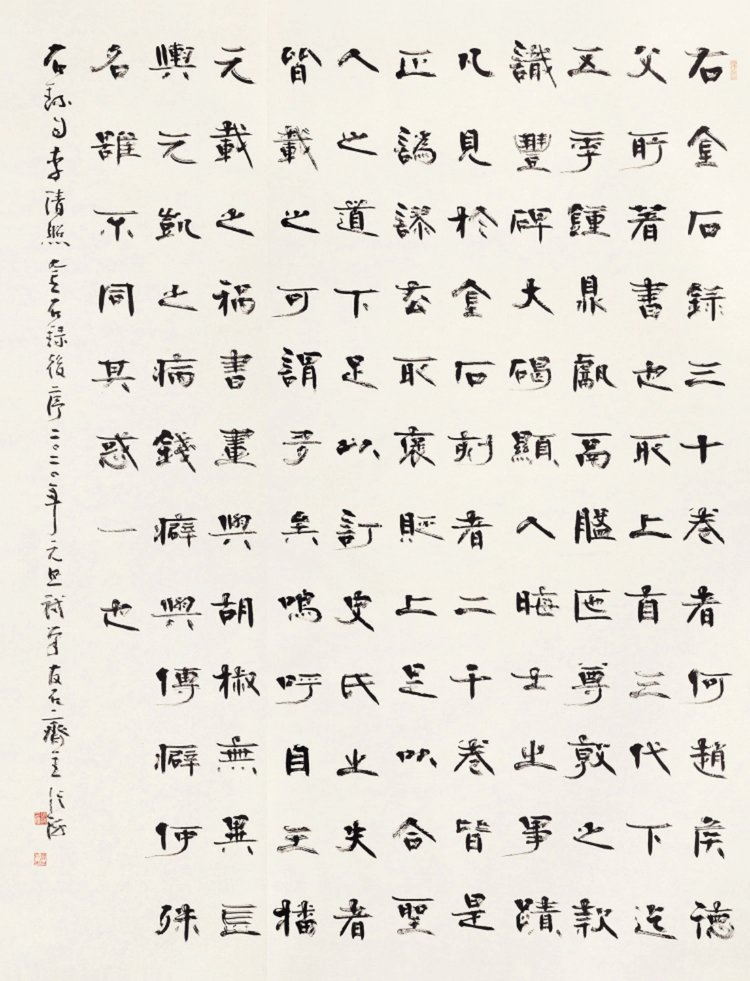 右金石錄三十卷者何趙矦德
父所著書也取上自三代下迄
五季鍾鼎甗鬲盤匜尊敦之款
識豐碑大碣顯人晦士之事蹟
凡見於金石刻者二千卷皆是
正譌謬去取褒貶上足以合聖
人之道下足以訂史氏之失者
皆載之可謂多矣嗚呼自王播
元載之禍書畫與胡椒無異長
輿元凱之病錢癖與傳癖何殊
名雖不同其惑一也
右錄自李清照金石錄後序二〇二〇年元旦試筆友石齋主張海